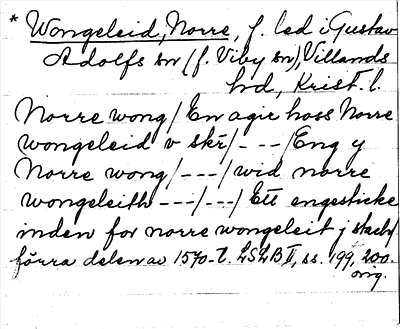 * Wongeleid, Norre, f. led i Gustav
Adolfs sn (f. Viby sn), Villands
hd, Krist. l.
Norre wong / En agir hoss Norre
wongeleid v skr/ - - - / Eng y
Norre wong / - - - / wid norre
wongeleith - - - / - - / Ett engesticke
inden for norre wongeleit j stach/
förra delen av 1570-t. LSLB II, ss. 199, 200.
orig.